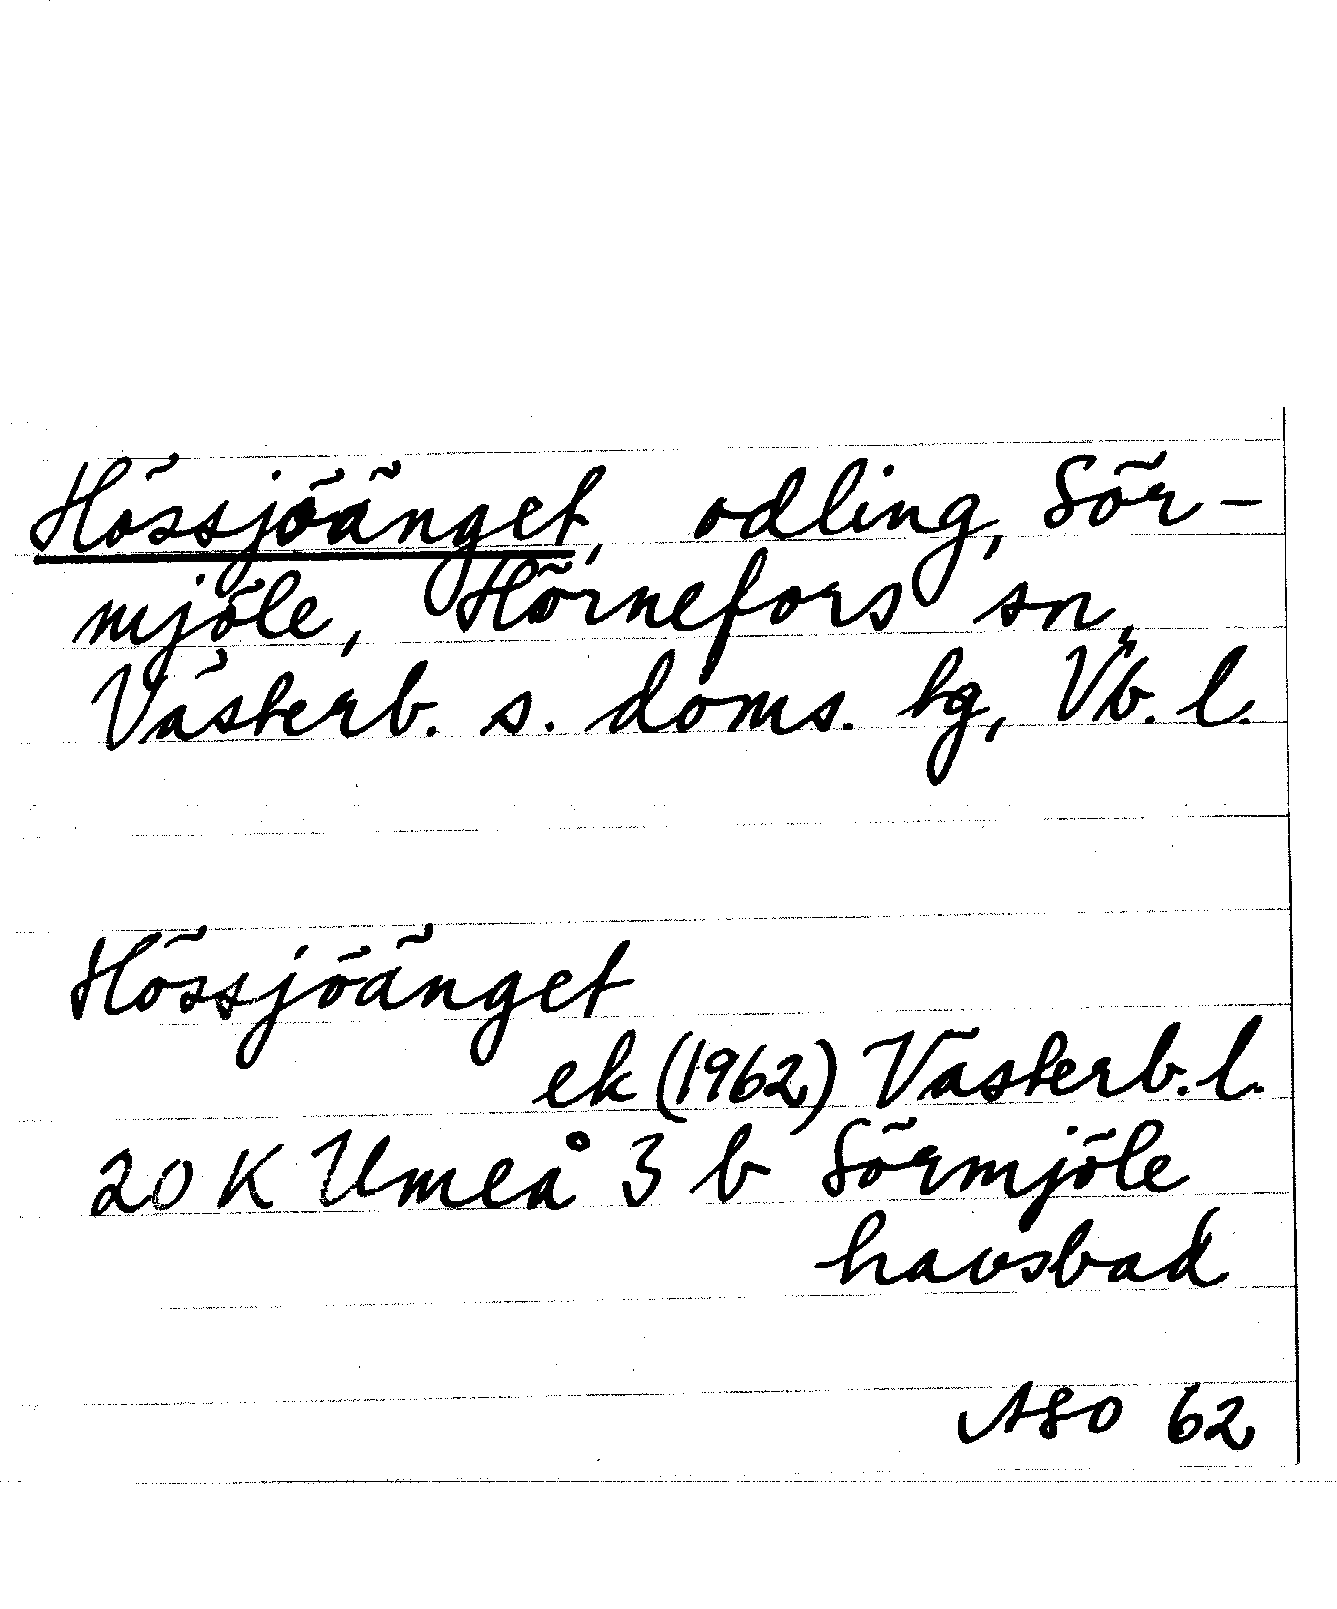 Hössjöänget, odling, Sör-
mjöle, Hörnefors sn,
Västerb. s. doms. tg, Vb. l.
Hössjöänget
ek (1962) Västerb. l.
20 K Umeå 3 b Sörmjöle
havsbad
ASO 62